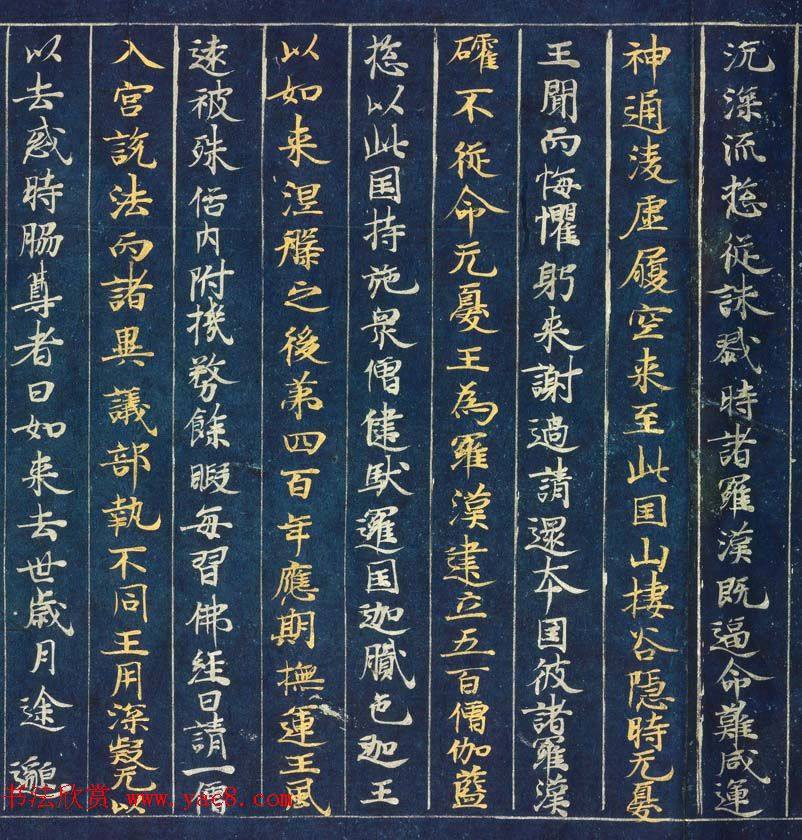 沉深流惣從誅戮時諸羅漢既逼命難咸運
神通淩虛履空来至此囯山捿谷隱時无憂
王聞而悔懼躬来謝過請還本囯彼諸羅漢
確不從命无憂王為羅漢建立五百僧伽藍
惣以此囯持施衆僧健馱邏囯迦膩色迦王
以如来涅槃之後第四百年應期撫運王風
遠被殊俗内附機務餘暇每習佛經日請一僧
入宮說法而諸異議部執不同王用深疑无以
以去惑時脇尊者曰如来去世歲月途邈
书法欣赏 www.yac8.com